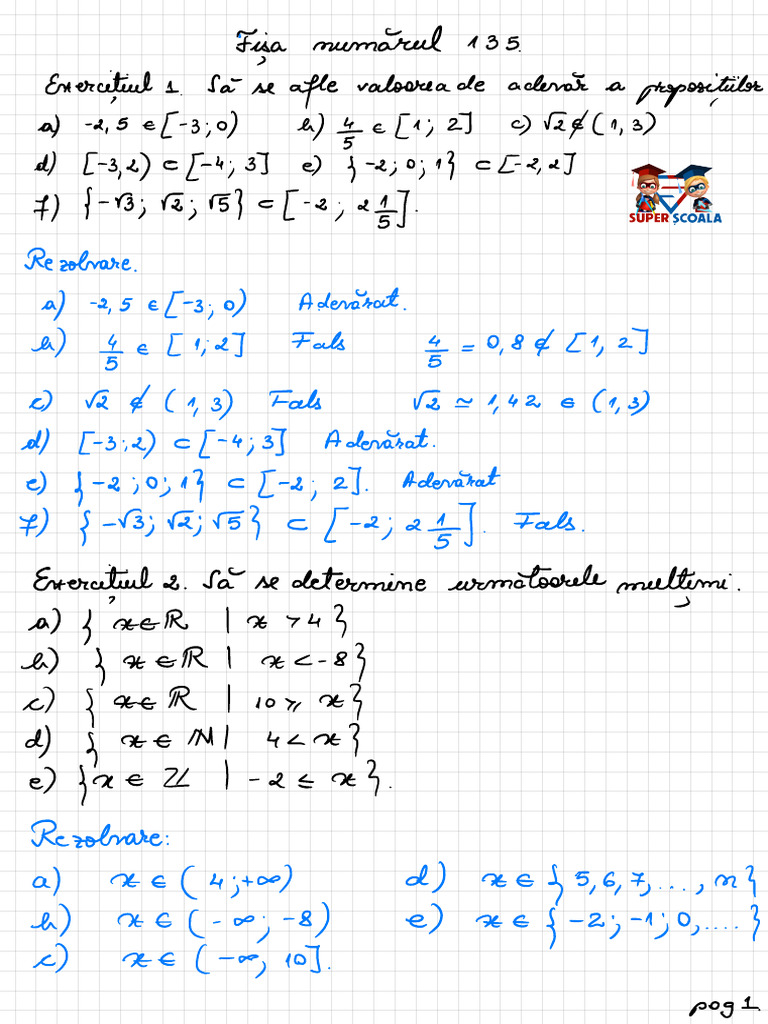 Fișa numărul 135.
Exercițiul 1. Să se afle valoarea de adevăr a propozițiilor
a) -2,5 ∈ [-3; 0) b) 4/5 ∈ [1; 2] c) √2 ∉ (1, 3)
d) [-3,2) ⊂ [-4; 3] e) {-2; 0; 1} ⊂ [-2, 2]
f) {-√3; √2; √5} ⊂ [-2; 2 1/5].
SUPER ȘCOALA
Rezolvare.
a) -2,5 ∈ [-3; 0) Adevărat.
b) 4/5 ∈ [1; 2] Fals 4/5 = 0,8 ∉ [1, 2]
c) √2 ∉ (1, 3) Fals √2 ≃ 1,42 ∈ (1, 3)
d) [-3; 2) ⊂ [-4; 3] Adevărat.
e) {-2; 0; 1} ⊂ [-2; 2]. Adevărat
f) {-√3; √2; √5} ⊂ [-2; 2 1/5]. Fals.
Exercițiul 2. Să se determine următoarele mulțimi.
a) { x∈ℝ | x > 4}
b) { x ∈ ℝ | x < -8}
c) { x ∈ ℝ | 10 ⩾ x}
d) { x ∈ ℕ | 4 < x}
e) {x ∈ ℤ | -2 ≤ x}.
Rezolvare:
a) x ∈ ( 4; +∞) d) x ∈ {5, 6, 7, ..., n}
b) x ∈ (-∞; -8) e) x ∈ {-2; -1; 0, ....}
c) x ∈ (-∞, 10].
pag 1